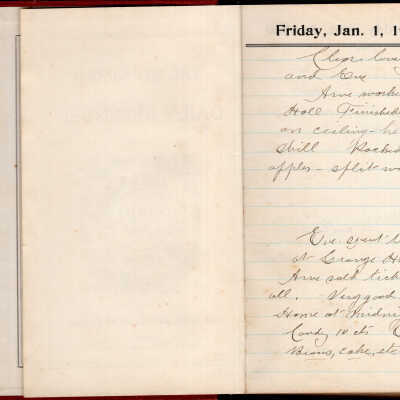 Friday, Jan. 1, 1
Clear love
and Eve
Arve worke
Hall Finished
on ceiling - he
still Racked
apples - split wo
Eve. spent
at Grange H
Arve sold tick
all. Very good
Home at Midni
Candy 10 cts
Beans, cake, etc